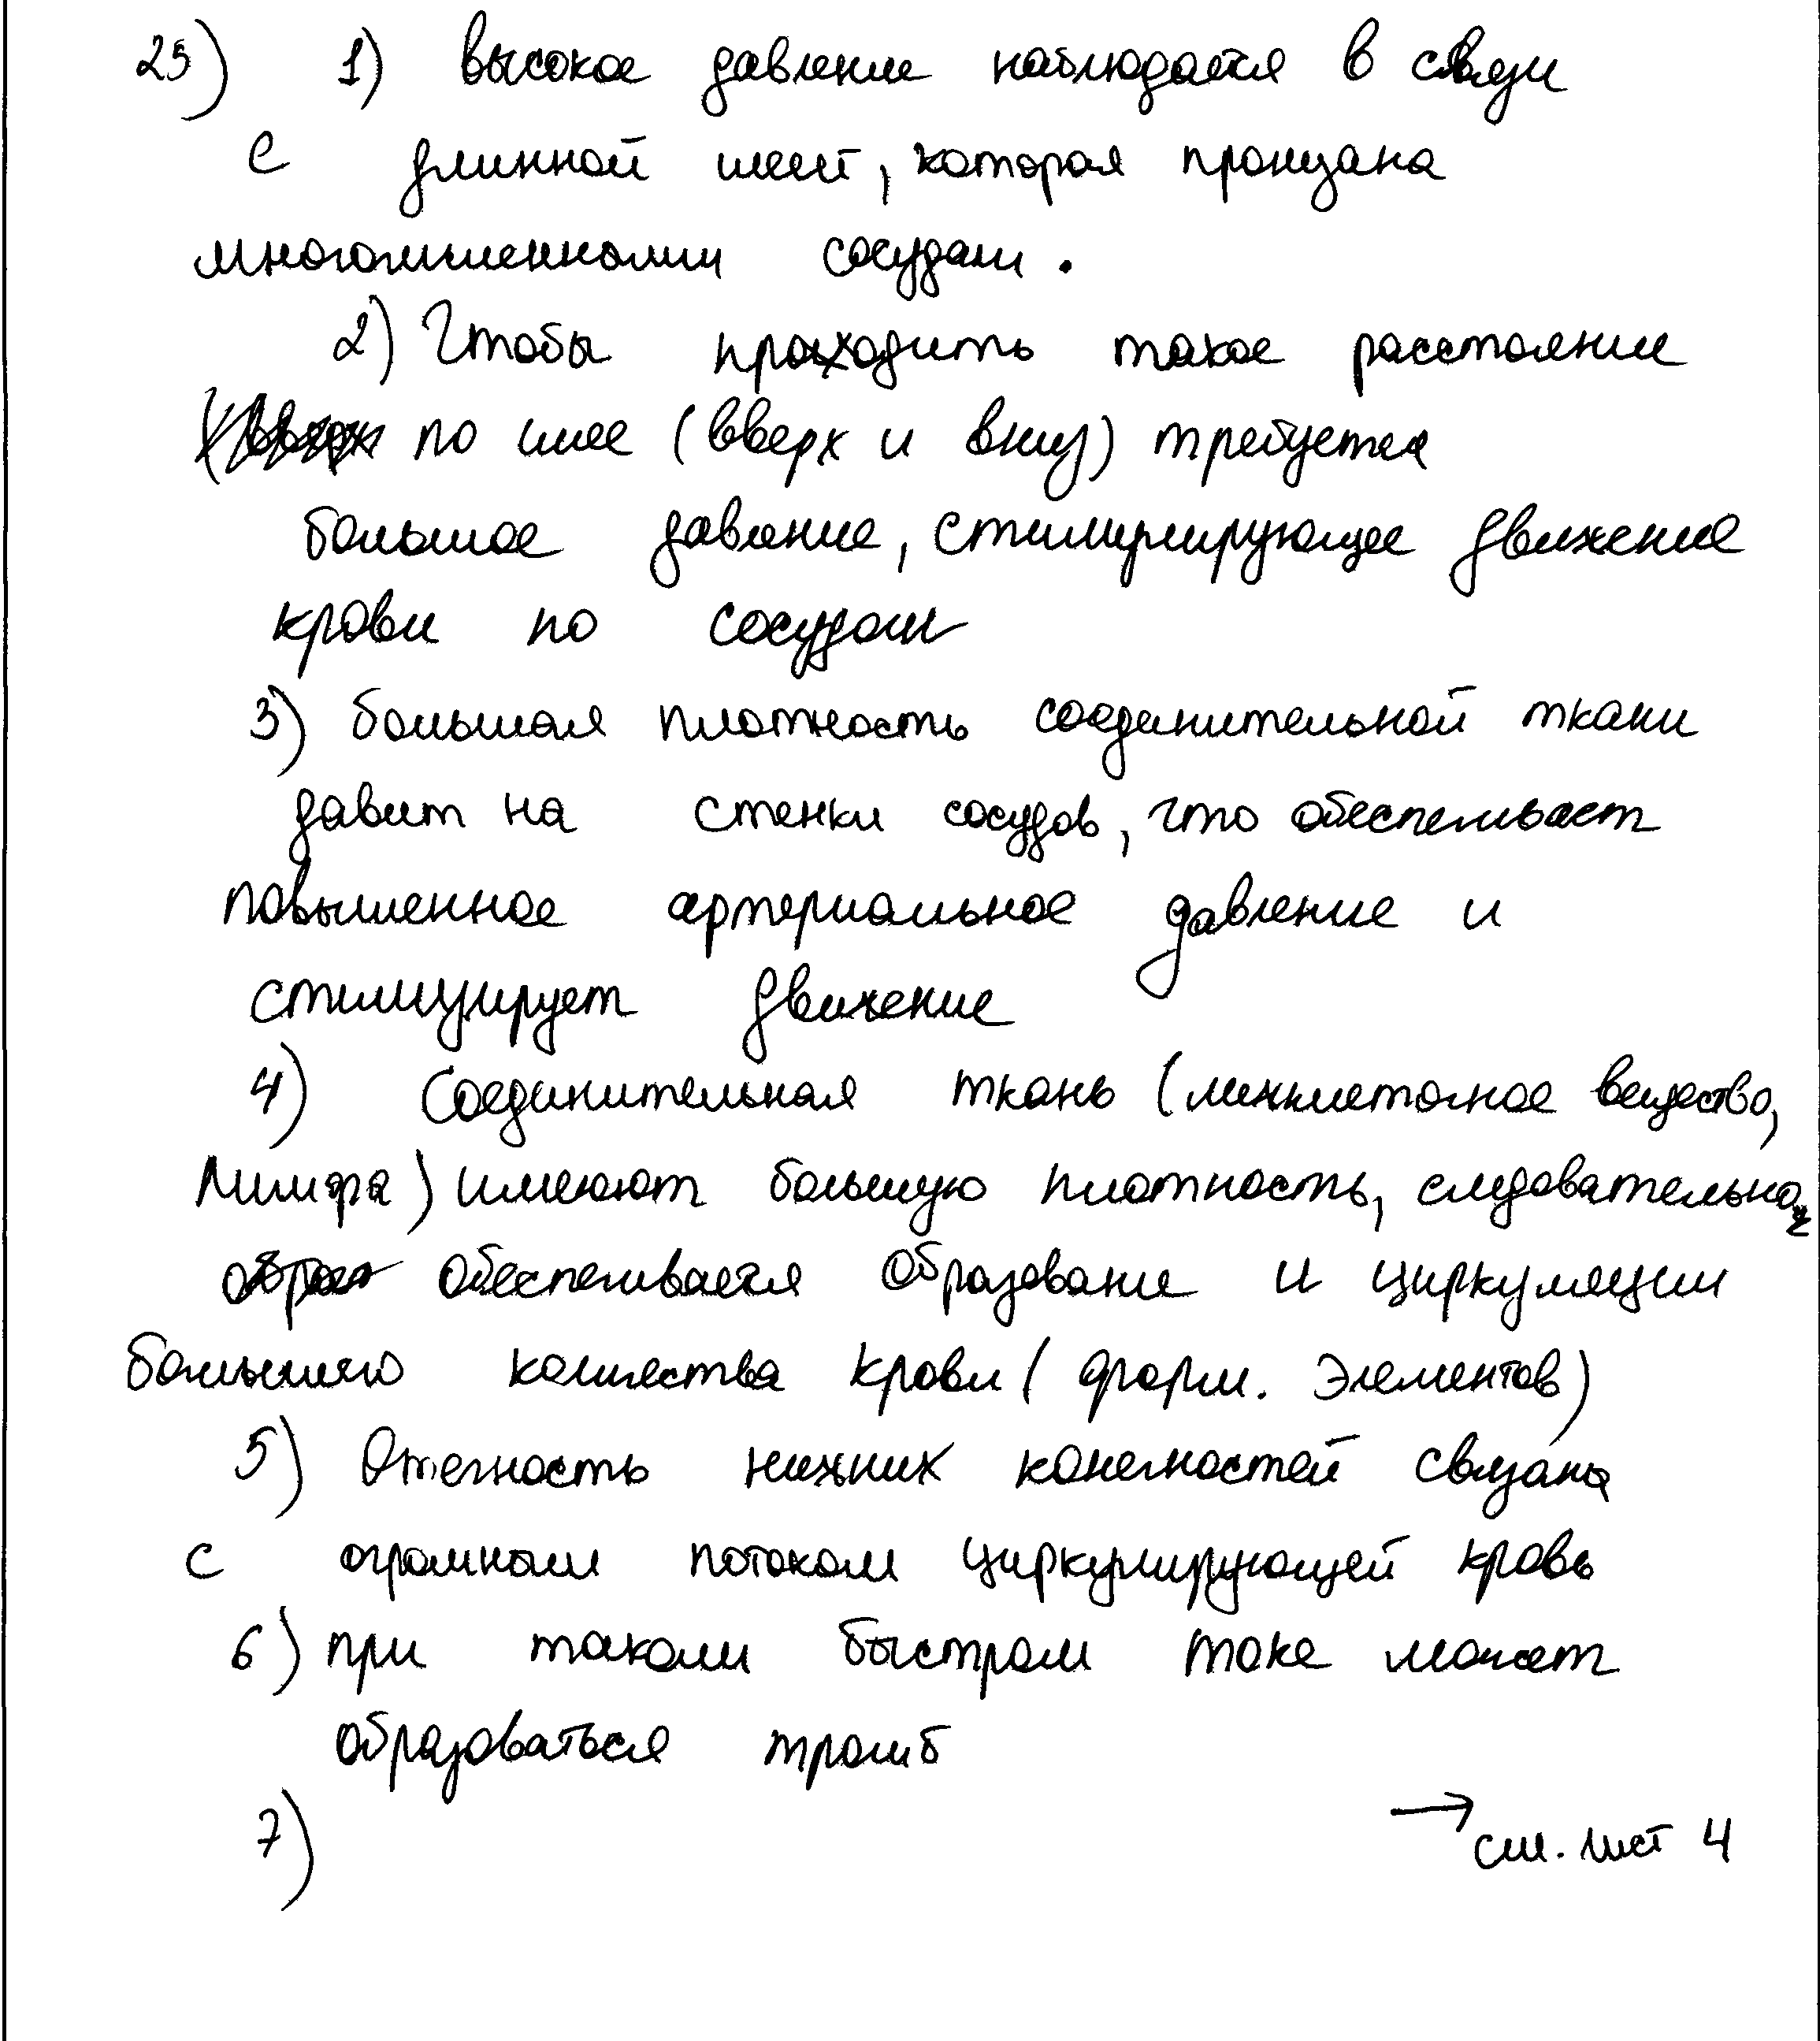 25) 1) высокое давление наблюдается в связи
с длинной шеей, которая пронизана
многочисленными сосудами.
2) Чтобы проходить такое расстояние
по шее (вверх и вниз) требуется
большое давление, стимулирующее движение
крови по сосудам
3) большая плотность соединительной ткани
давит на стенки сосудов, что обеспечивает
повышенное артериальное давление и
стимулирует движение
4) Соединительная ткань (межклеточное вещество,
лимфа) имеют большую плотность, следовательно,
обеспечивается образование и циркуляции
большего количества крови (форм. элементов)
5) Отечность нижних конечностей связана
с огромным потоком циркулирующей кровь
6) при таком быстром токе может
образоваться тромб
7)
→ см. лист 4